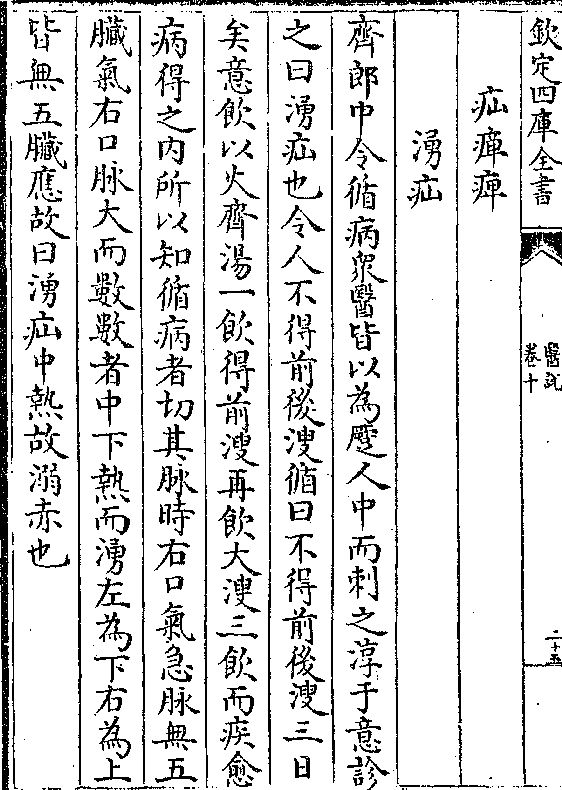 欽定四庫全書
醫説
卷十
二十五
疝癉痺
湧疝
齊郎中令循病衆醫皆以為蹷人中而刺之淳于意診
之曰湧疝也令人不得前後溲循曰不得前後溲三日
矣意飲以火齊湯一飲得前溲再飲大溲三飲而疾愈
病得之内所以知循病者切其脉時右口氣急脉無五
臟氣右口脉大而數數者中下熱而湧左為下右為上
皆無五臟應故曰湧疝中熱故溺赤也